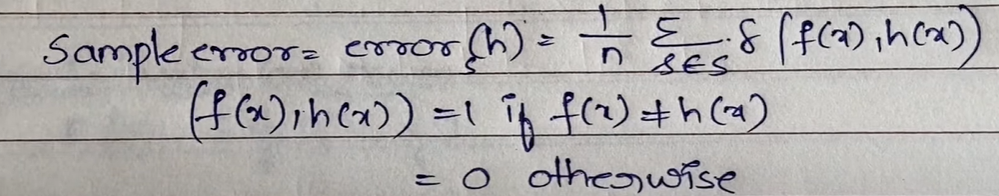 Sample error = error_s(h) = 1/n Σ_{s∈S} δ (f(x), h(x))
(f(x), h(x)) = 1 if f(x) ≠ h(x)
= 0 otherwise